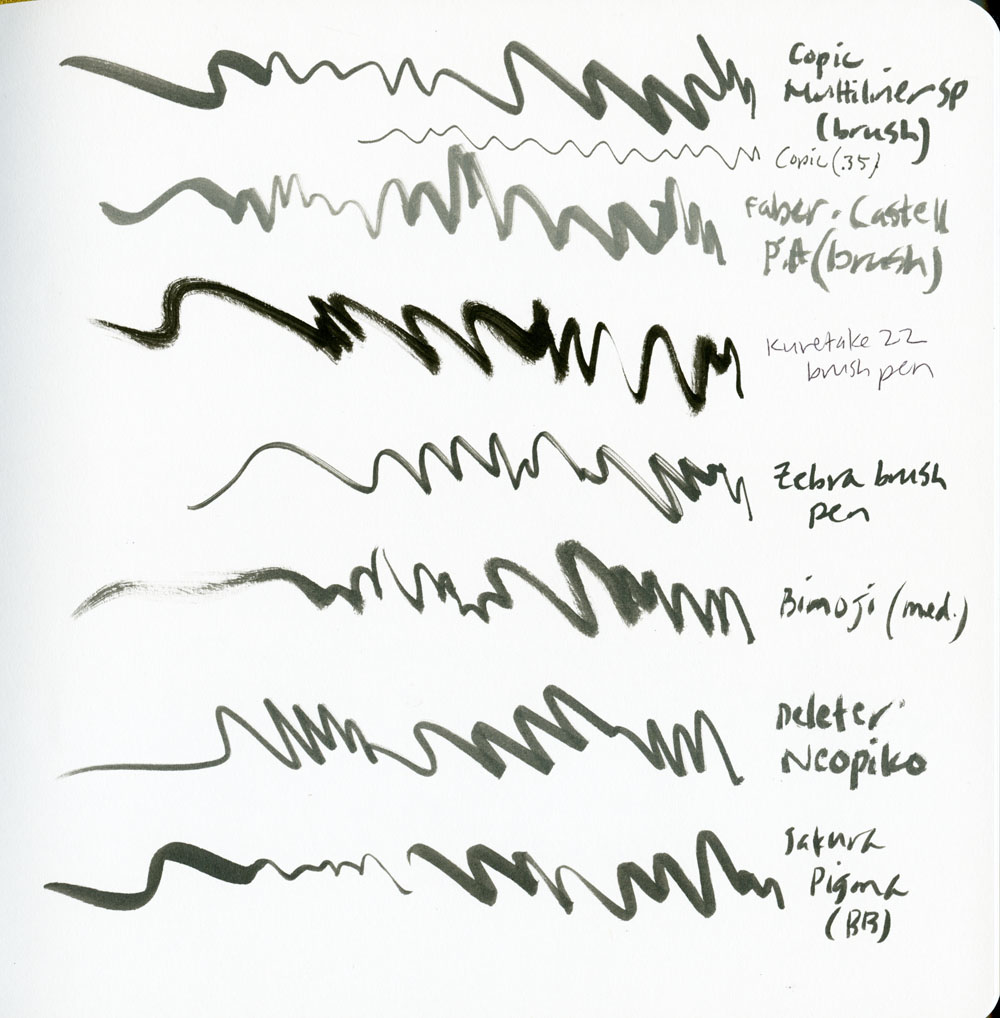 Copic
Multiliner SP
(brush)
Copic (.35)
Faber-Castell
P.A (brush)
Kuretake 22
brush pen
Zebra brush
pen
Bimoji (med.)
Deleter
Neopiko
Sakura
Pigma
(BB)